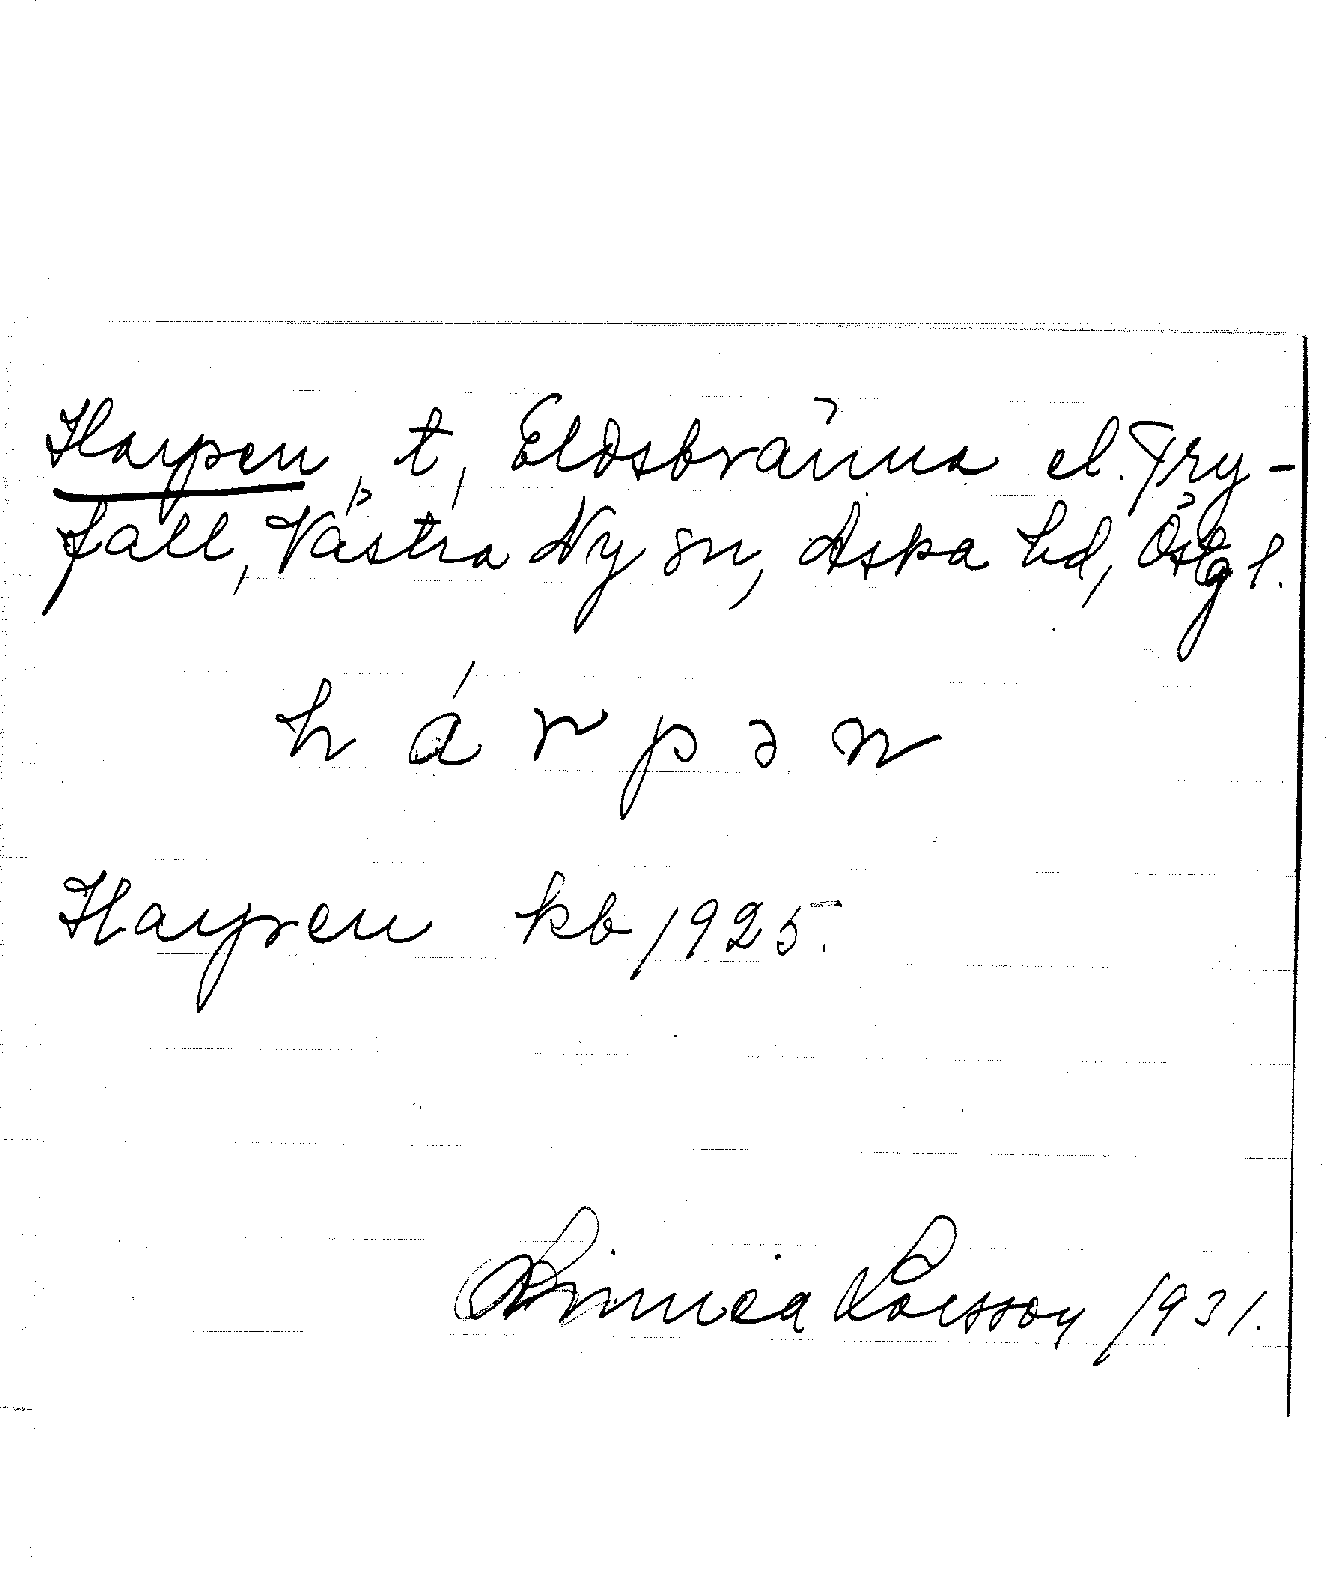 Harpen, t, Eldsbränna el. Fry-
fall, Västra Ny sn, Aska hd, Östgl.
h á r p ə n
Harpen kb 1925.
Linnea Larsson 1931.